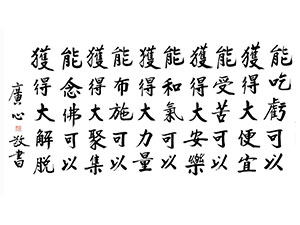 能吃虧可以
獲得大便宜
能受苦可以
獲得大安樂
能和氣可以
獲得大力量
能布施可以
獲得大聚集
能念佛可以
獲得大解脫
廣心敬書